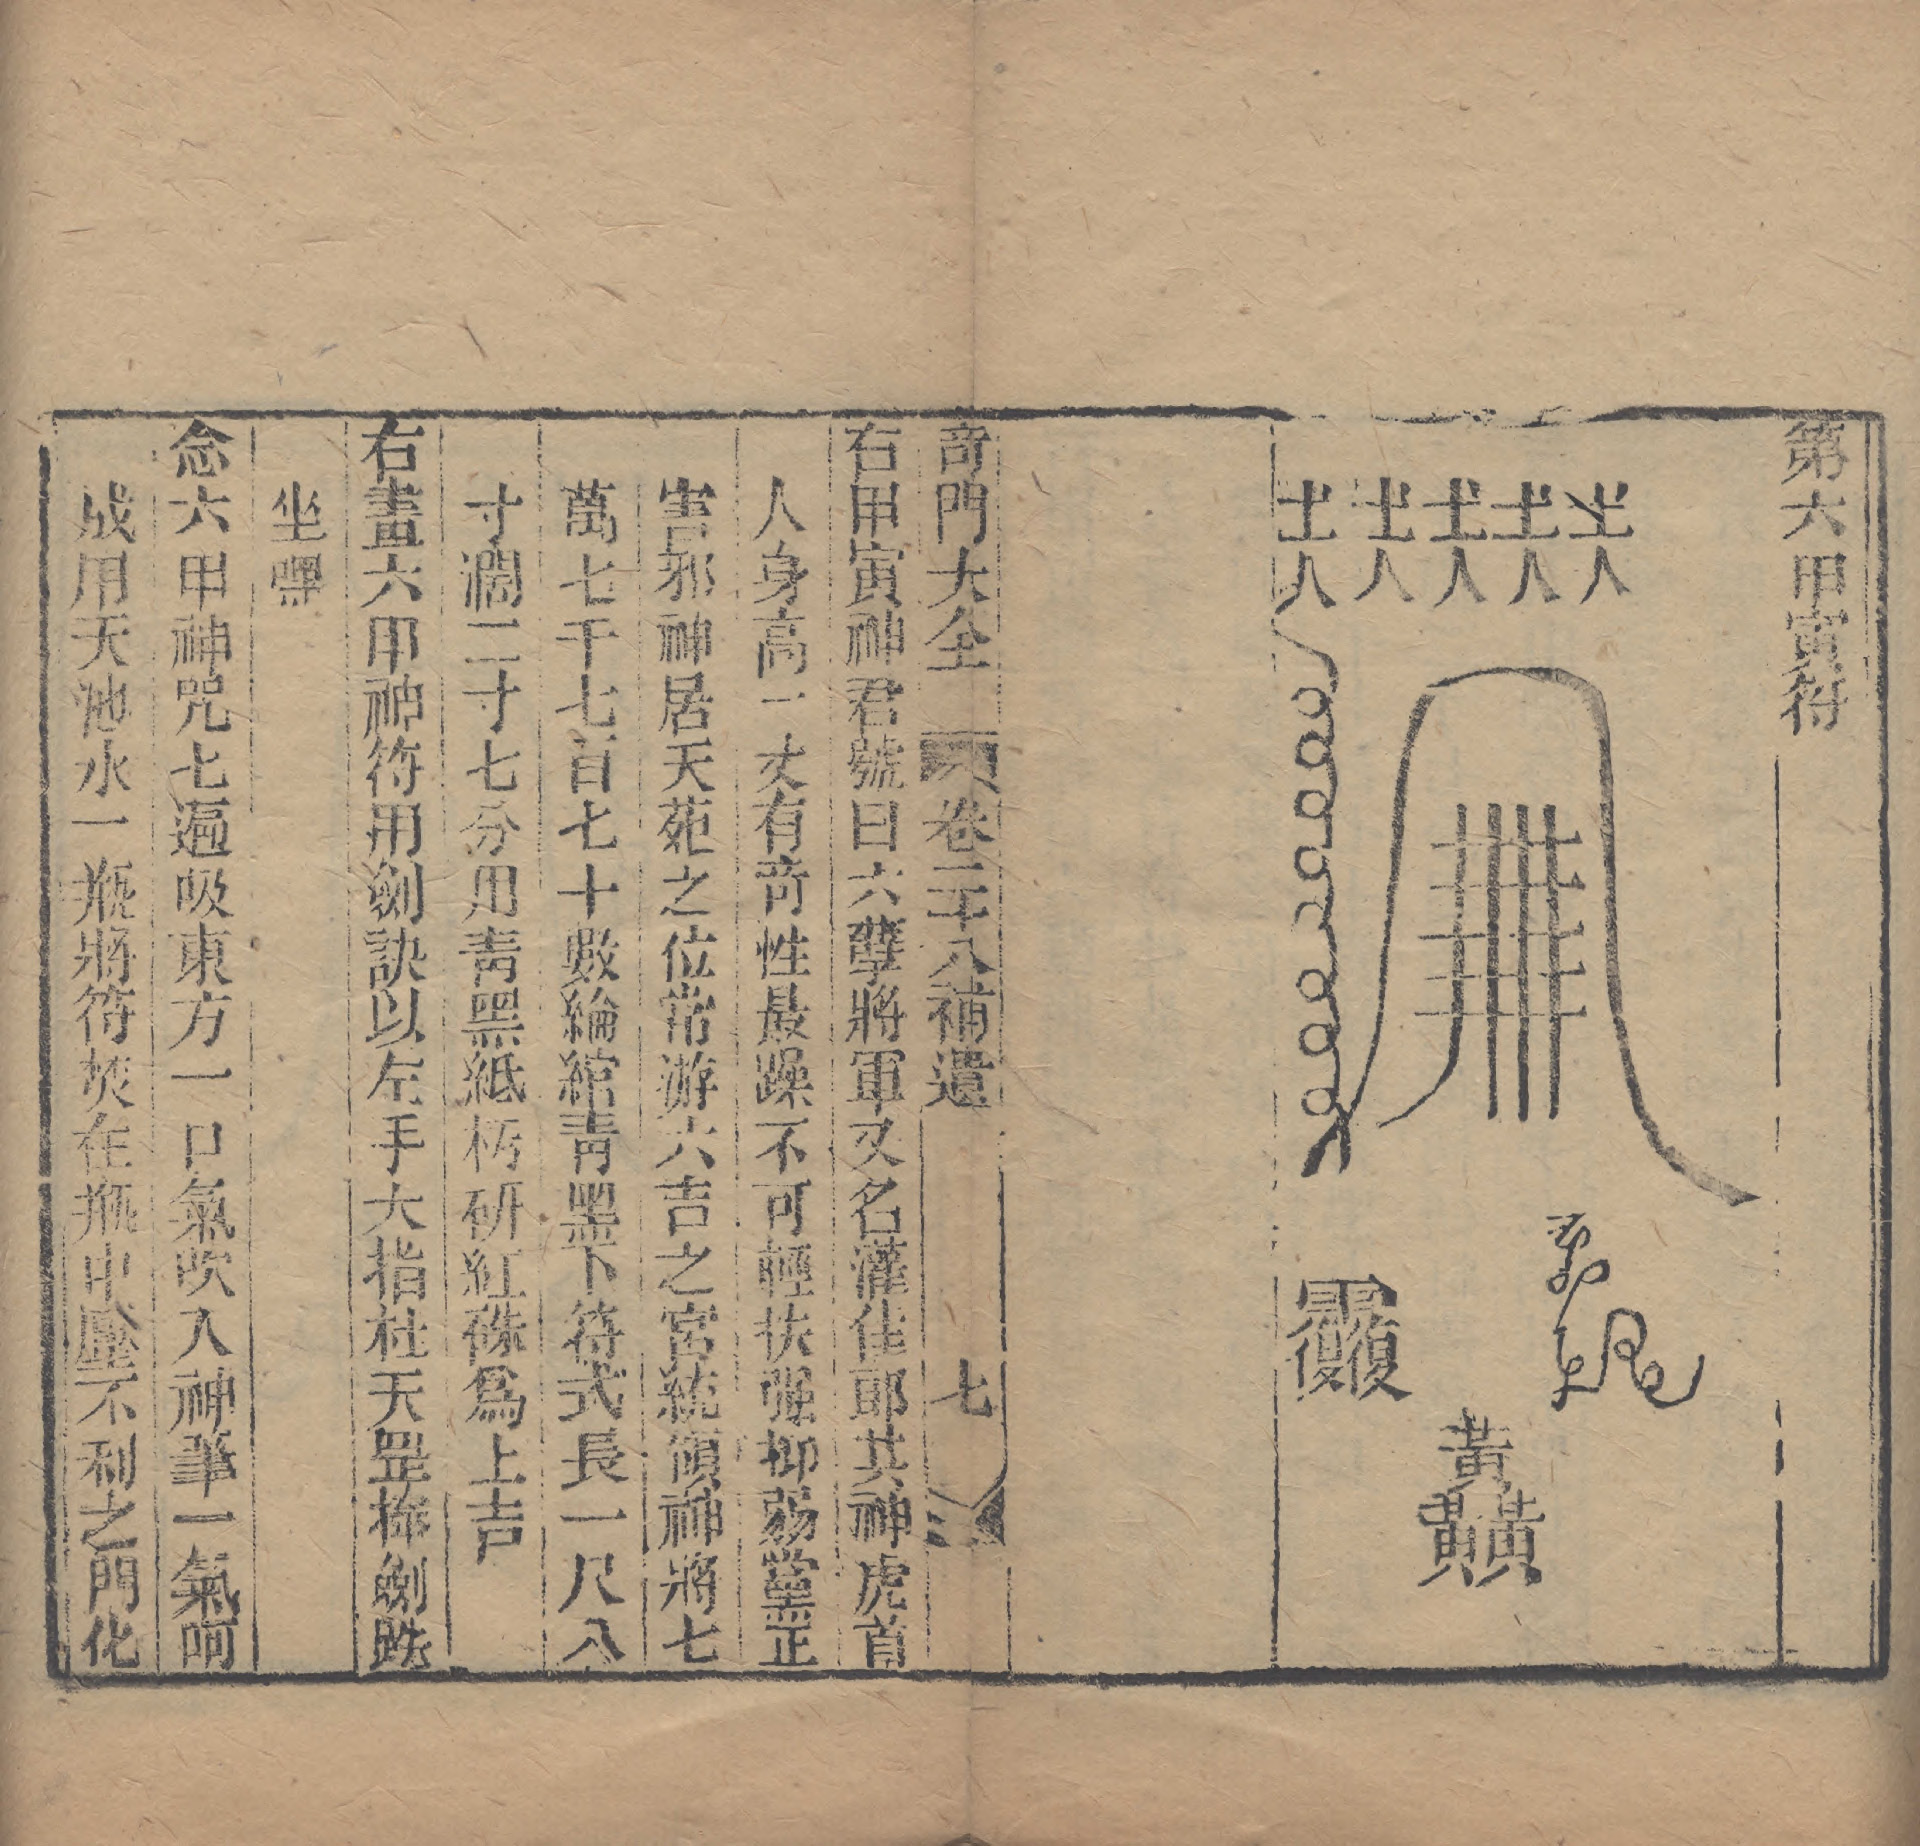 第六甲寅符
奇門大全 卷二十八補遺 七
右甲寅神君號曰六孽將軍又名濯佳耶其神虎首
人身高一丈有奇性最躁不可輕扶强抑弱黨正
害邪神居天苑之位常游六吉之宮統領神將七
萬七千七百七十數綸綰青墨下符式長一尺八
寸濶二寸七分用青黑紙朽研紅硃爲上吉
右畫六甲神符用劍訣以左手大指柱天罡掐劍跌
坐嘿
念六甲神咒七遍吸東方一口氣吹入神筆一氣呵
成用天池水一瓶將符焚在瓶中壓不利之門化